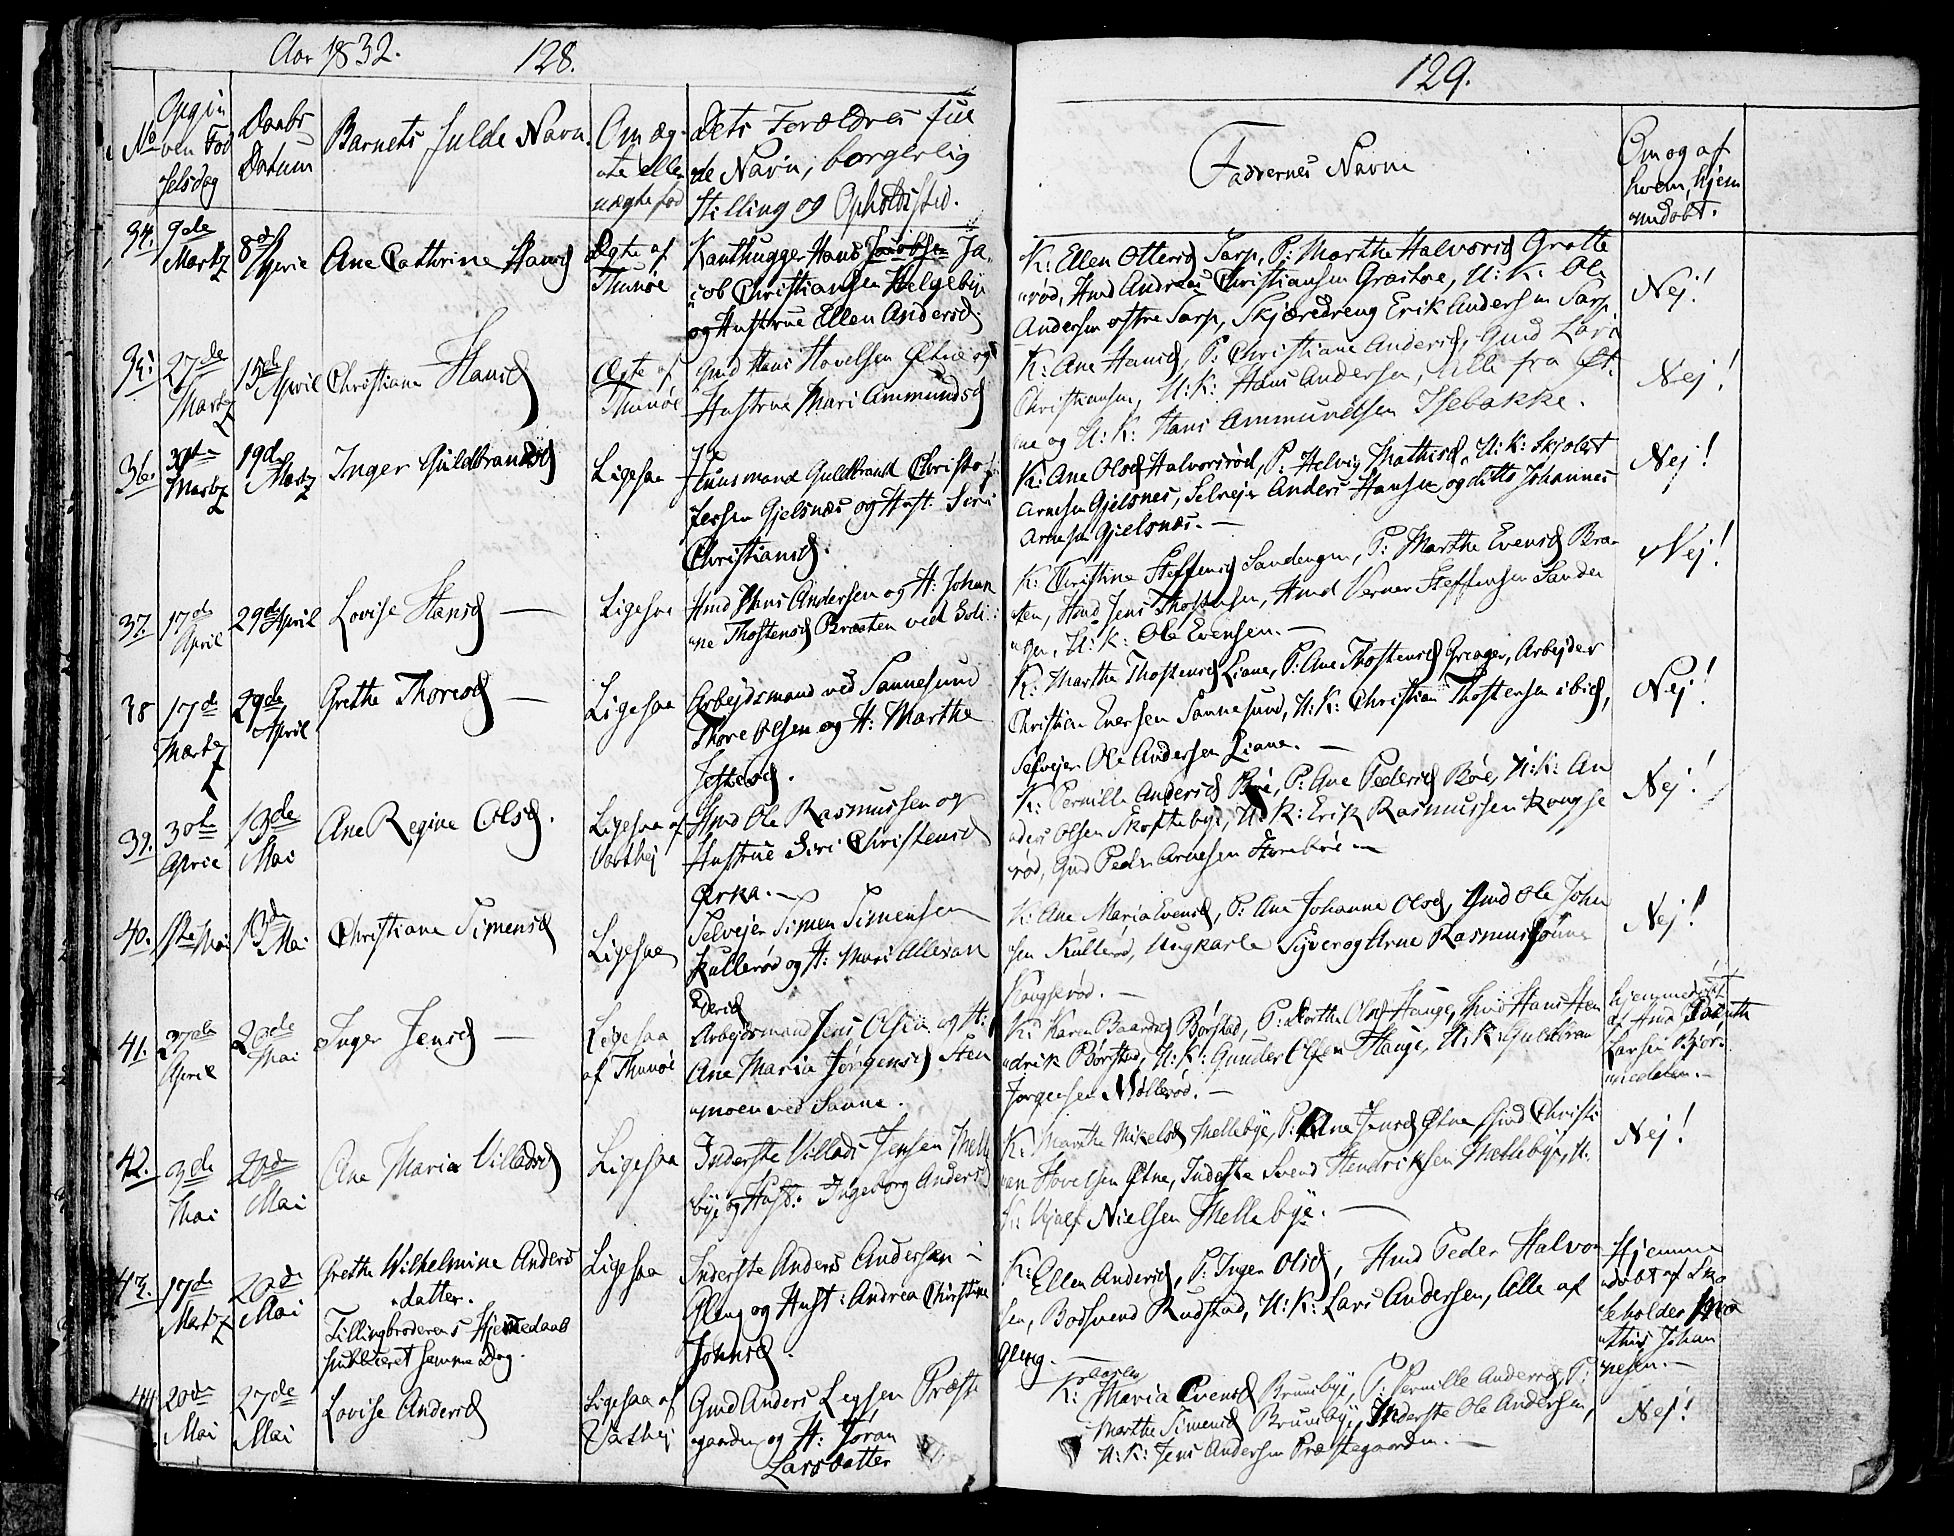 Aar 1832. 128.
No
Opgiven Fødselsdag
Daabs Datum
Barnets fulde Navn
Om ægte eller uægte fød
Dets Forældres fulde Navn, borgerlig
Stilling og Opholdsted.
34. 9de Martz
8de April
Ane Cathrine Hansd
Ægte af Thunøe
Kanthugger Hans Jacobsen Ja-
cob Christiansen Helgebye
og Hustrue Ellen Andersd.
35. 27de Martz
15de April
Christiane Hansd
Ægte af Thunøe
Gmd Hans Hovelsen Østne og
Hustrue Mari Ammundsd
36.
Martz
19d Martz
Inger Guldbrandsd
Ligesaa
Huusmand Guldbrand Christo-
fersen Gjelsnæs og Hust: Siri
Christiansd.
37. 17de April
29de April
Lovise Hansd —
Ligesaa
Hmd Hans Andersen og H: Johan
ne Thostensd Bræten ved Soli:
38 17de Martz
29de April
Grethe Thoresd —
Ligesaa
Arbejdsmand ved Sannesund
Thore Olsen og H: Marthe
39. 3die April
13de Mai
Ane Regine Olsd.
Ligesaa af Varthej
Hmd Ole Rasmussen og
Hustrue Siri Christensd
Ørka. —
40. Mai
13de Mai
Christiane Simensd
Ligesaa
Selvejer Simen Simensen
Kullerød og H: Mari Alexan
dersd
41. 27de April
20de Mai
Inger Jensd —
Ligesaa af Thunøe
Arbejdsmand Jens Olsen og H:
Ane Maria Jørgensd Sten
moen ved Sanne.
42. 3de Mai
20de Mai
Ane Maria Villadsd
Ligesaa
Inderste Villads Jensen Melle
bye og Hust: Ingeborg Andersd
43. 17de Martz
20de Mai
Grethe Wilhelmine Anders
datter.
Tillingbroderens Hjemedaab
publiceret samme Dag.
Ligesaa
Inderste Anders Andersen i
Gleng og Hust: Andrea Christine
Johnsd.
44 20de Mai
27de Mai
Lovise Andersd
Ligesaa af Varthej
Gmd Anders Legsen Præste
gaarden og H: Jøran
Larsdatter
129.
Faddernes Navne
Om og af hvem hjem
medøbt.
K: Ellen Ottersd Sarp, P: Marthe Halvorsd Grotte
rød, Hmd Andreas Christiansen Græstøe, U: K: Ole
Andersen østre Sarp, Skjæredreng Erik Andersen Sarp
Nej!
K: Ane Hansd, P: Christiane Andersd, Gmd Lars
Christiansen, U: K: Hans Andersen, Alle fra Øst-
ne og U: K: Hans Ammundsen Isebakke.
Nej!
K: Ane Olsd Halvorsrød, P: Helvig Mathisd, U: K: Skjolert
Arnesen Gjelsnes, Selvejer Anders Hansen og ditto Johannes
Arnesen Gjelsnæs. —
Nej!
K: Christine Steffensd Sandengen, P: Marthe Evensd Bræ
ten, Hmd Jens Thostensen, Hmd Verner Steffensen Sanden
gen, U: K: Ole Evensen. —
Nej!
K: Marthe Thostensd Liane, P: Ane Thostensd Greager, Arbejder
Christian Evensen Sannesund, U: K: Christian Thostensen ibid,
Selvejer Ole Andersen Liane. —
Nej!
K: Pernille Andersd Bøe, P: Ane Pedersd Bøe, U: K: An
ders Olsen Skoftebye, U: K: Erik Rasmussen Kougse
rød, Gmd Peder Arnesen Storebøe —
Nej!
K: Ane Maria Evensd, P: Ane Johanne Olsd, Gmd Ole John
sen Kullerød, Ungkarle Syver og Arne Rasmussønner
Kougserød. —
Nej!
K: Karen Baardsd Børstad, P: Dorthe Olsd Hauge, Hmd Hans Hen
drik Børstad, U: K: Gunder Olsen Hauge, U: K: Guldbran
Jørgensen Møllerød. —
hjemmedøbt
af Hmd
Larsen Bjør-
nedalen. —
K: Marthe Mikelsd Mellebye, P: Ane Jensd Østne, Gmd Christi
an Hovelsen Østne, Inderste Svend Hendriksen Mellebye, U:
K: Nielsen Mellebye. —
Nej!
K: Ellen Andersd, P: Inger Olsd, Hmd Peder Halvor
sen, Bodsvend Rudstad, U: K: Lars Andersen, Alle af
Gleng. —
Hjemme
døbt af Sko
leholder Ma
this Johan
nesen. —
K: Maria Evensd Brunsbye, P: Pernille Andersd, P:
Marthe Simensd Brunsbye, Inderste Ole Andersen,
U: K: Jens Andersen Præstegaarden. —
Nej!